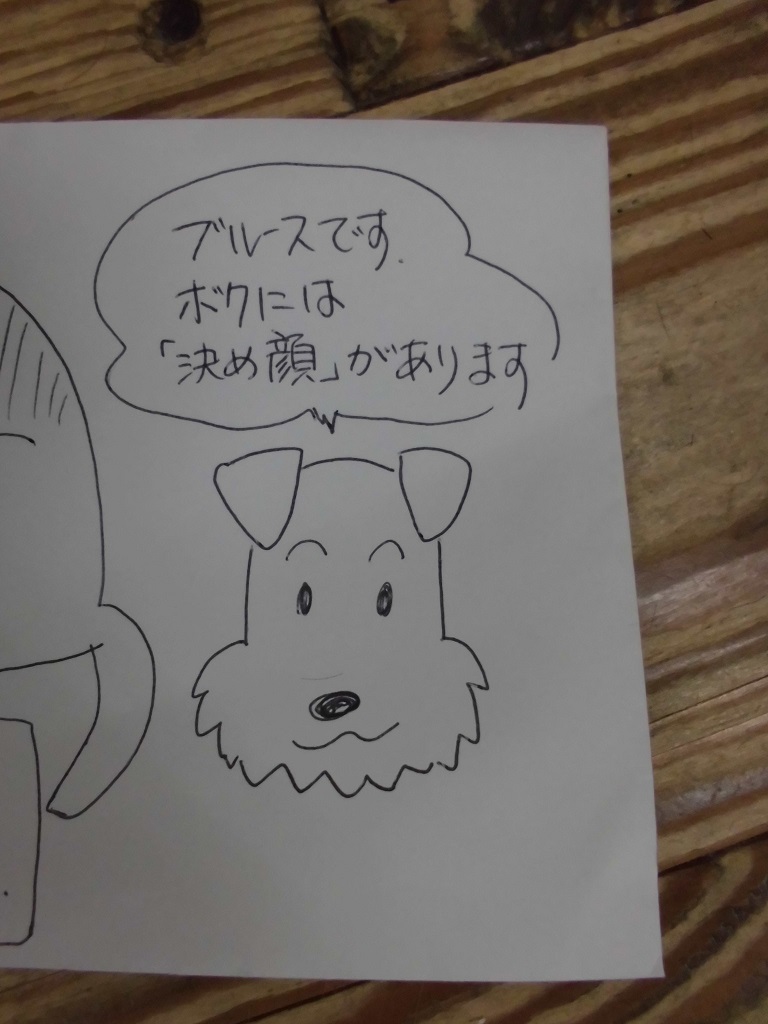 ブルースです.
ボクには
「決め顔」があります